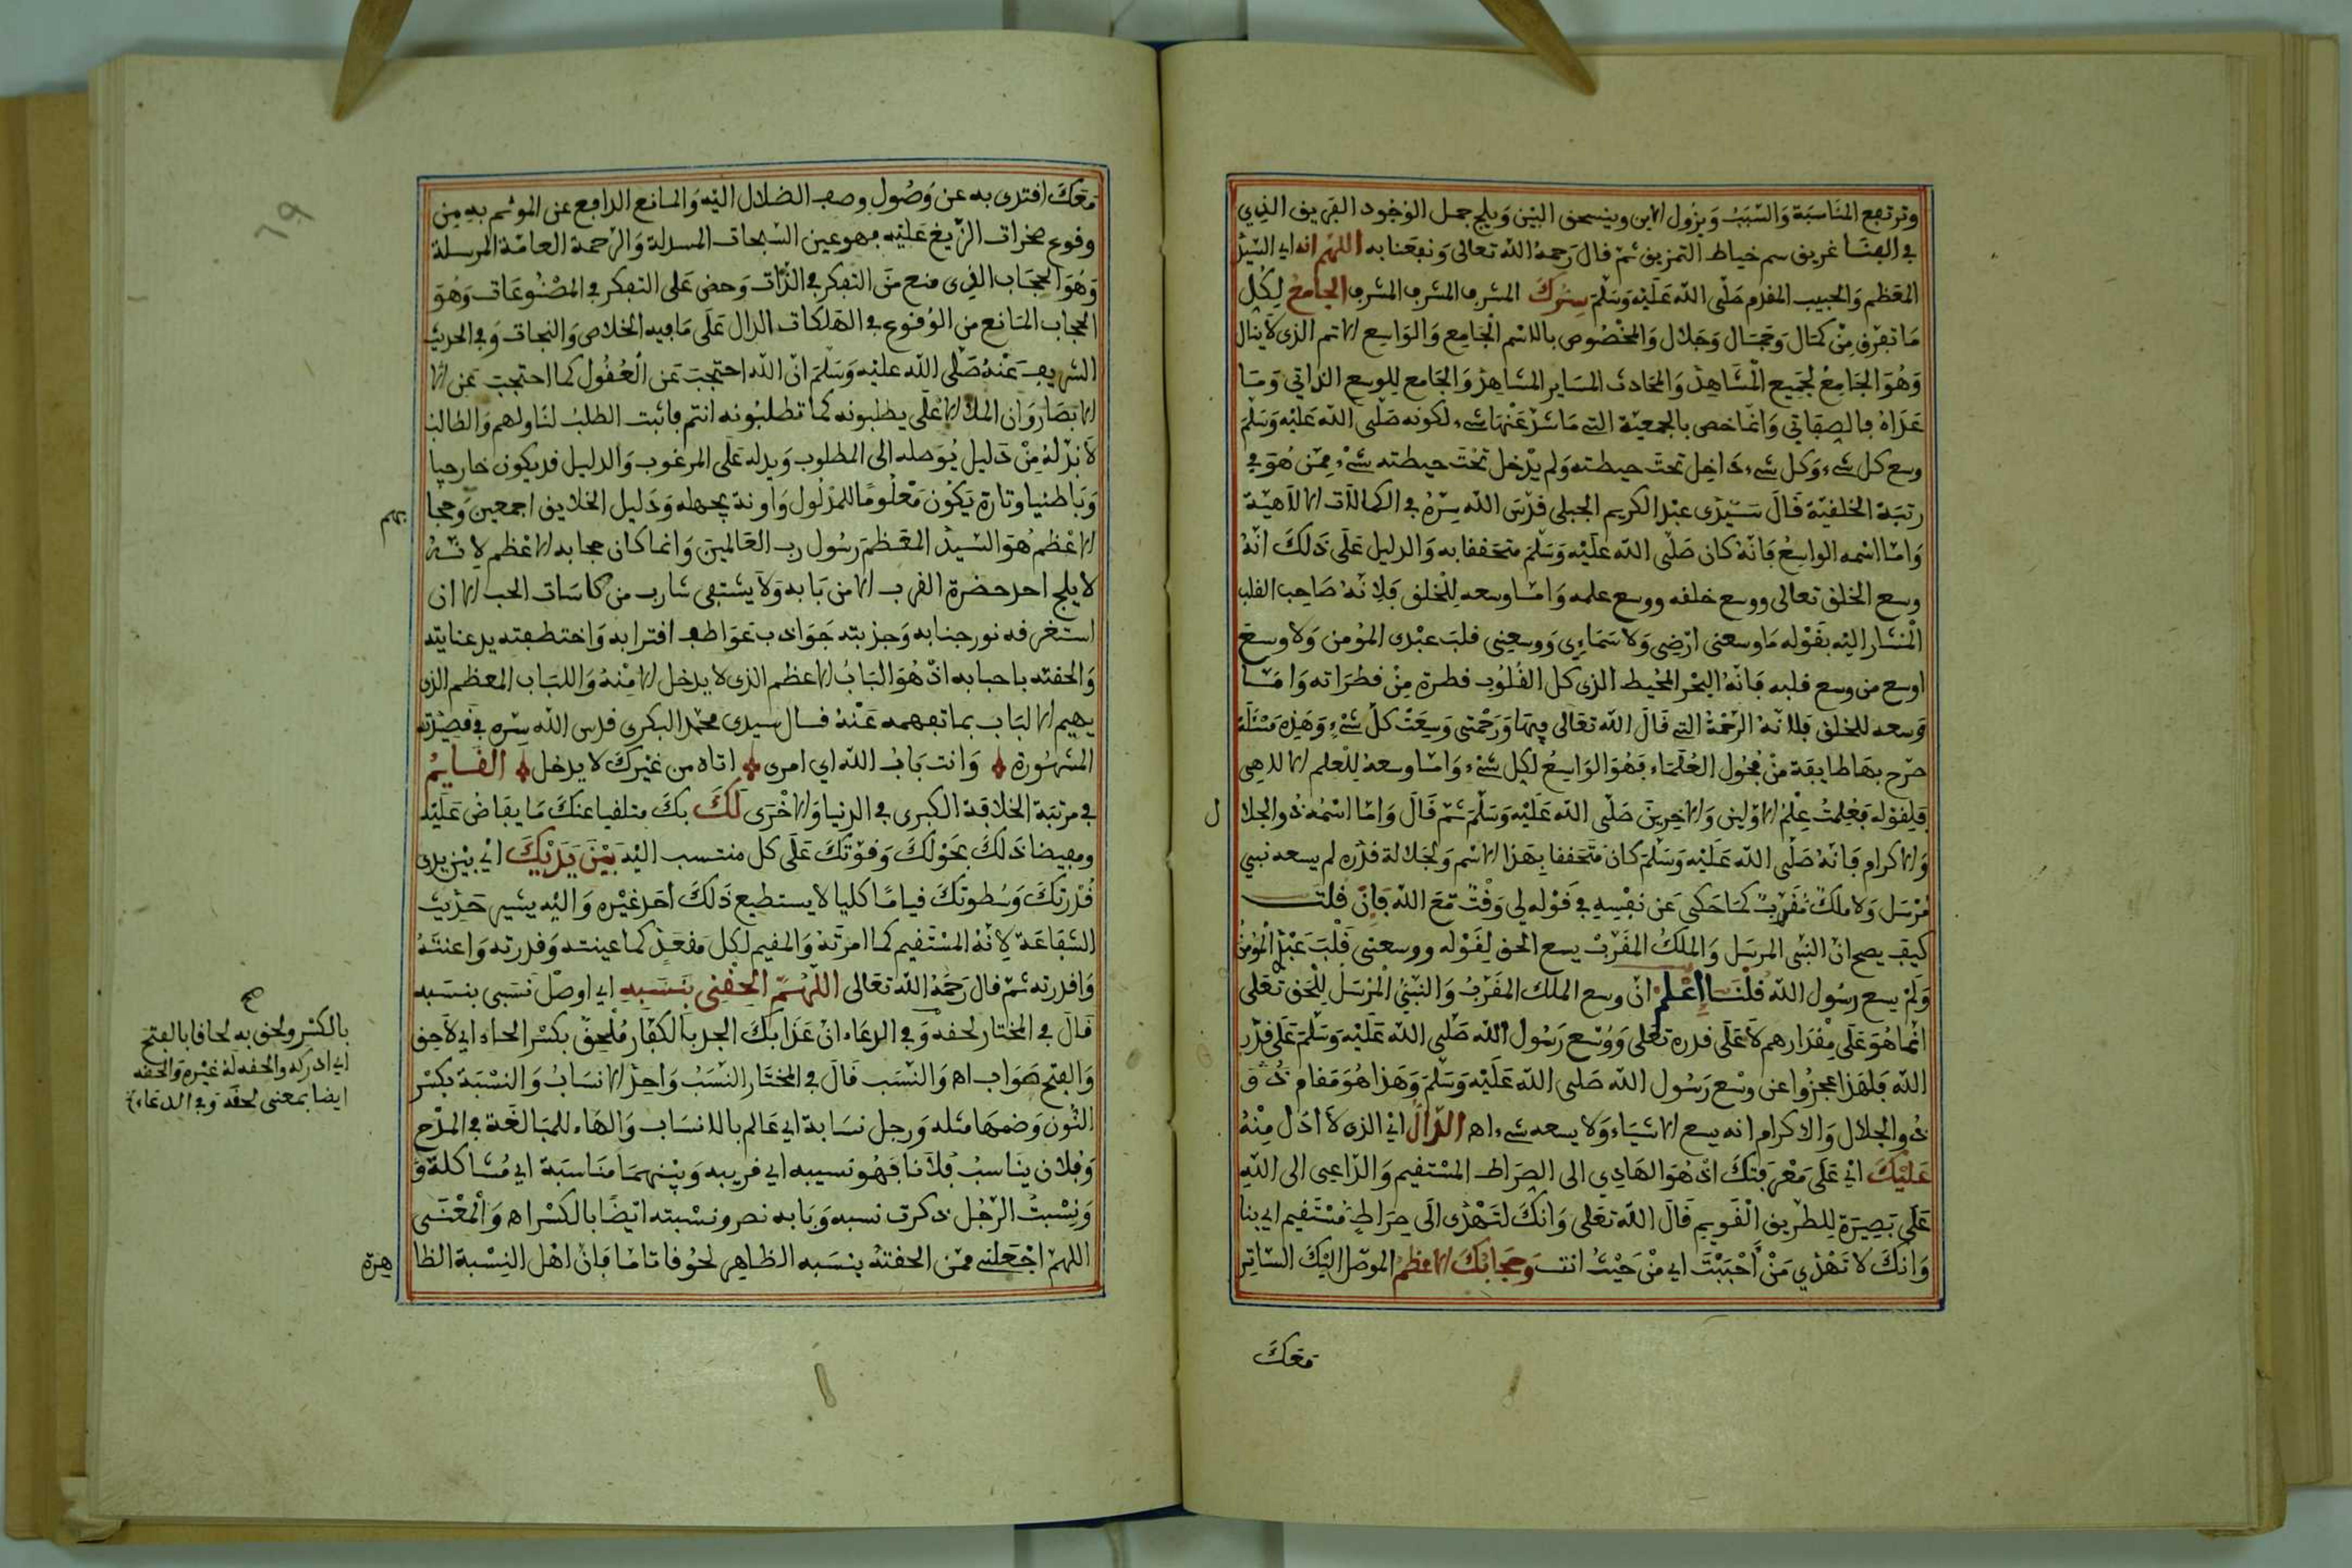 وترتفع المناسبة والسبب ويزول الاين وينسحق البين ويلج جمل الوجود الغريق الذي
في الفنا غريق سم خياط التمزيق ثم قال رحمه الله تعالى ونفعنا به اللهم انه اي السيد
المعظم والحبيب المفدم صلى الله عليه وسلم سرك المشرق المشرف الجامع لكل
ما تفرق من كمال وجمال وجلال والمخصوص بالاسم الجامع والواسع الاتم الذي لا ينال
وهو الجامع لجميع المشاهد والمحادث المساير المشاهد والجامع للوسع الذاتي وما
عداه فالصفاتي وانما خص بالجمعية التي ما شذ عنها شيء لكونه صلى الله عليه وسلم
وسع كل شيء وكل شيء داخل تحت حيطته ولم يدخل تحت حيطته شيء ممن هو في
رتبة الخلفية قال سيدي عبد الكريم الجيلي قدس الله سره في الكمالات الالاهية
واما اسمه الواسع فانه كان صلى الله عليه وسلم متحققا به والدليل على ذلك انه
وسع الخلق تعالى ووسع خلقه ووسع علمه واما وسعه للخلق فلانه صاحب القلب
المشار اليه بقوله ما وسعني ارضي ولا سماءي ووسعني قلب عبدي المومن ولا وسع
اوسع من وسع قلبه فانه البحر المحيط الذي كل القلوب قطرة من قطراته واما
وسعه للخلق فلانه الرحمة التي قال الله تعالى فيها ورحمتي وسعت كل شيء وهذه مسئلة
صرح بها طايفة من فحول العلماء فهو الواسع لكل شيء واما وسعه للعلم الالاهي
فلقوله فعلمت علم الاولين والاخرين صلى الله عليه وسلم ثم قال واما اسمه ذو الجلا
ل
والاكرام فانه صلى الله عليه وسلم كان متحققا بهذا الاسم ولجلالة قدره لم يسعه نبي
مرسل ولا ملك مقرب كما حكى عن نفسه في قوله لي وقت مع الله فان قلت
كيف يصح ان النبي المرسل والملك المقرب يسع الحق لقوله ووسعني قلب عبدي المومن
ولم يسع رسول الله قلنا اعلم ان وسع الملك المقرب والنبي المرسل للحق تعلى
انما هو على مقدارهم لا على قدره تعلى ووسع رسول الله صلى الله عليه وسلم على قدر
الله فلهذا عجزوا عن وسع رسول الله صلى الله عليه وسلم وهذا هو مقام
ذو الجلال والاكرام انه يسع الاشياء ولا يسعه شيء اه الدال اي الذي لا ادل منه
عليك اي على معرفتك اذ هو الهادي الى الصراط المستقيم والداعي الى الله
على بصيرة للطريق القويم قال الله تعلى وانك لتهدى الى صراط مستقيم اي بنا
وانك لا تهدي من احببت اي من حيث انت وحجابك الاعظم الموصل اليك الساتر
معك
معك افتدى به عن وصول وصف الضلال اليه والمانع الدافع عن الموتم به من
وقوع صخرات الزيغ عليه فهو عين السبحات المسدلة والرحمة العامة المرسلة
وهو الحجاب الذي منع من التفكر في الذات وحض على التفكر في المصنوعات وهو
الحجاب المانع من الوقوع في الهلكات الدال على ما فيه الخلاص والنجات وفي الحديث
الشريف عنه صلى الله عليه وسلم ان الله احتجب عن العقول كما احتجب عن الا
الابصار وان الملا الاعلى يطلبونه كما تطلبونه انتم فاثبت الطلب لنا ولهم والطالب
لا بد له من دليل يوصله الى المطلوب ويدله على المرغوب والدليل قد يكون خارجيا
وباطنيا وتارة يكون معلوما للمدلول واونة يجهله ودليل الخلايق اجمعين وحجا
بهم
الاعظم هو السيد المعظم رسول رب العالمين وانما كان حجابه الاعظم لانه
لا يلج احد حضرة القرب الا من بابه ولا يشتفي شارب من كاسات الحب الا ان
استغرقه نور جنابه وجذبته جواذب عواطف اقترابه واختطفته يد عنايته
والحقته باحبابه اذ هو الباب الاعظم الذي لا يدخل الا منه واللباب المعظم الذي
يهيم الالباب بما تفهمه عنه قال سيدي محمد البكري قدس الله سره في قصيدته
المشهورة وانت باب الله اي امرى اتاه من غيرك لا يدخل القايم
في مرتبة الخلافة الكبرى في الدنيا والاخرى لك بك متلقيا عنك ما يفاض عليه
ومفيضا ذلك بحولك وقوتك على كل منتسب اليه بين يديك اي بين يدى
قدرتك وسطوتك قياما كليا لا يستطيع ذلك احد غيره واليه يشير حديث
الشفاعة لانه المستقيم كما امرته والمقيم لكل مقعد كما عينته وقدرته واعنته
واقدرته ثم قال رحمه الله تعالى اللهم الحقني بنسبه اي اوصل نسبي بنسبه
قال في المختار لحقه وفي الدعاء ان عذابك الجد بالكفار ملحق بكسر الحاء اي لاحق
والفتح صواب اه والنسب قال في المختار النسب واحد الانساب والنسبة بكسر
النون وضمها مثله ورجل نسابة اي عالم بالانساب والهاء للمبالغة في المدح
وفلان يناسب فلانا فهو نسيبه اي قريبه وبينهما مناسبة اي مشاكلة و
ونسبت الرجل ذكرت نسبه وبابه نصر ونسبته ايضا بالكسر اه والمعنى
اللهم اجعلني ممن الحقته بنسبه الظاهر لحوقا تاما فان اهل النسبة الظا
هرة
صح
بالكسر ولحق به لحاقا بالفتح
اي ادركه والحقه له غيره والحقه
ايضا بمعنى لحقه وفي الدعاء